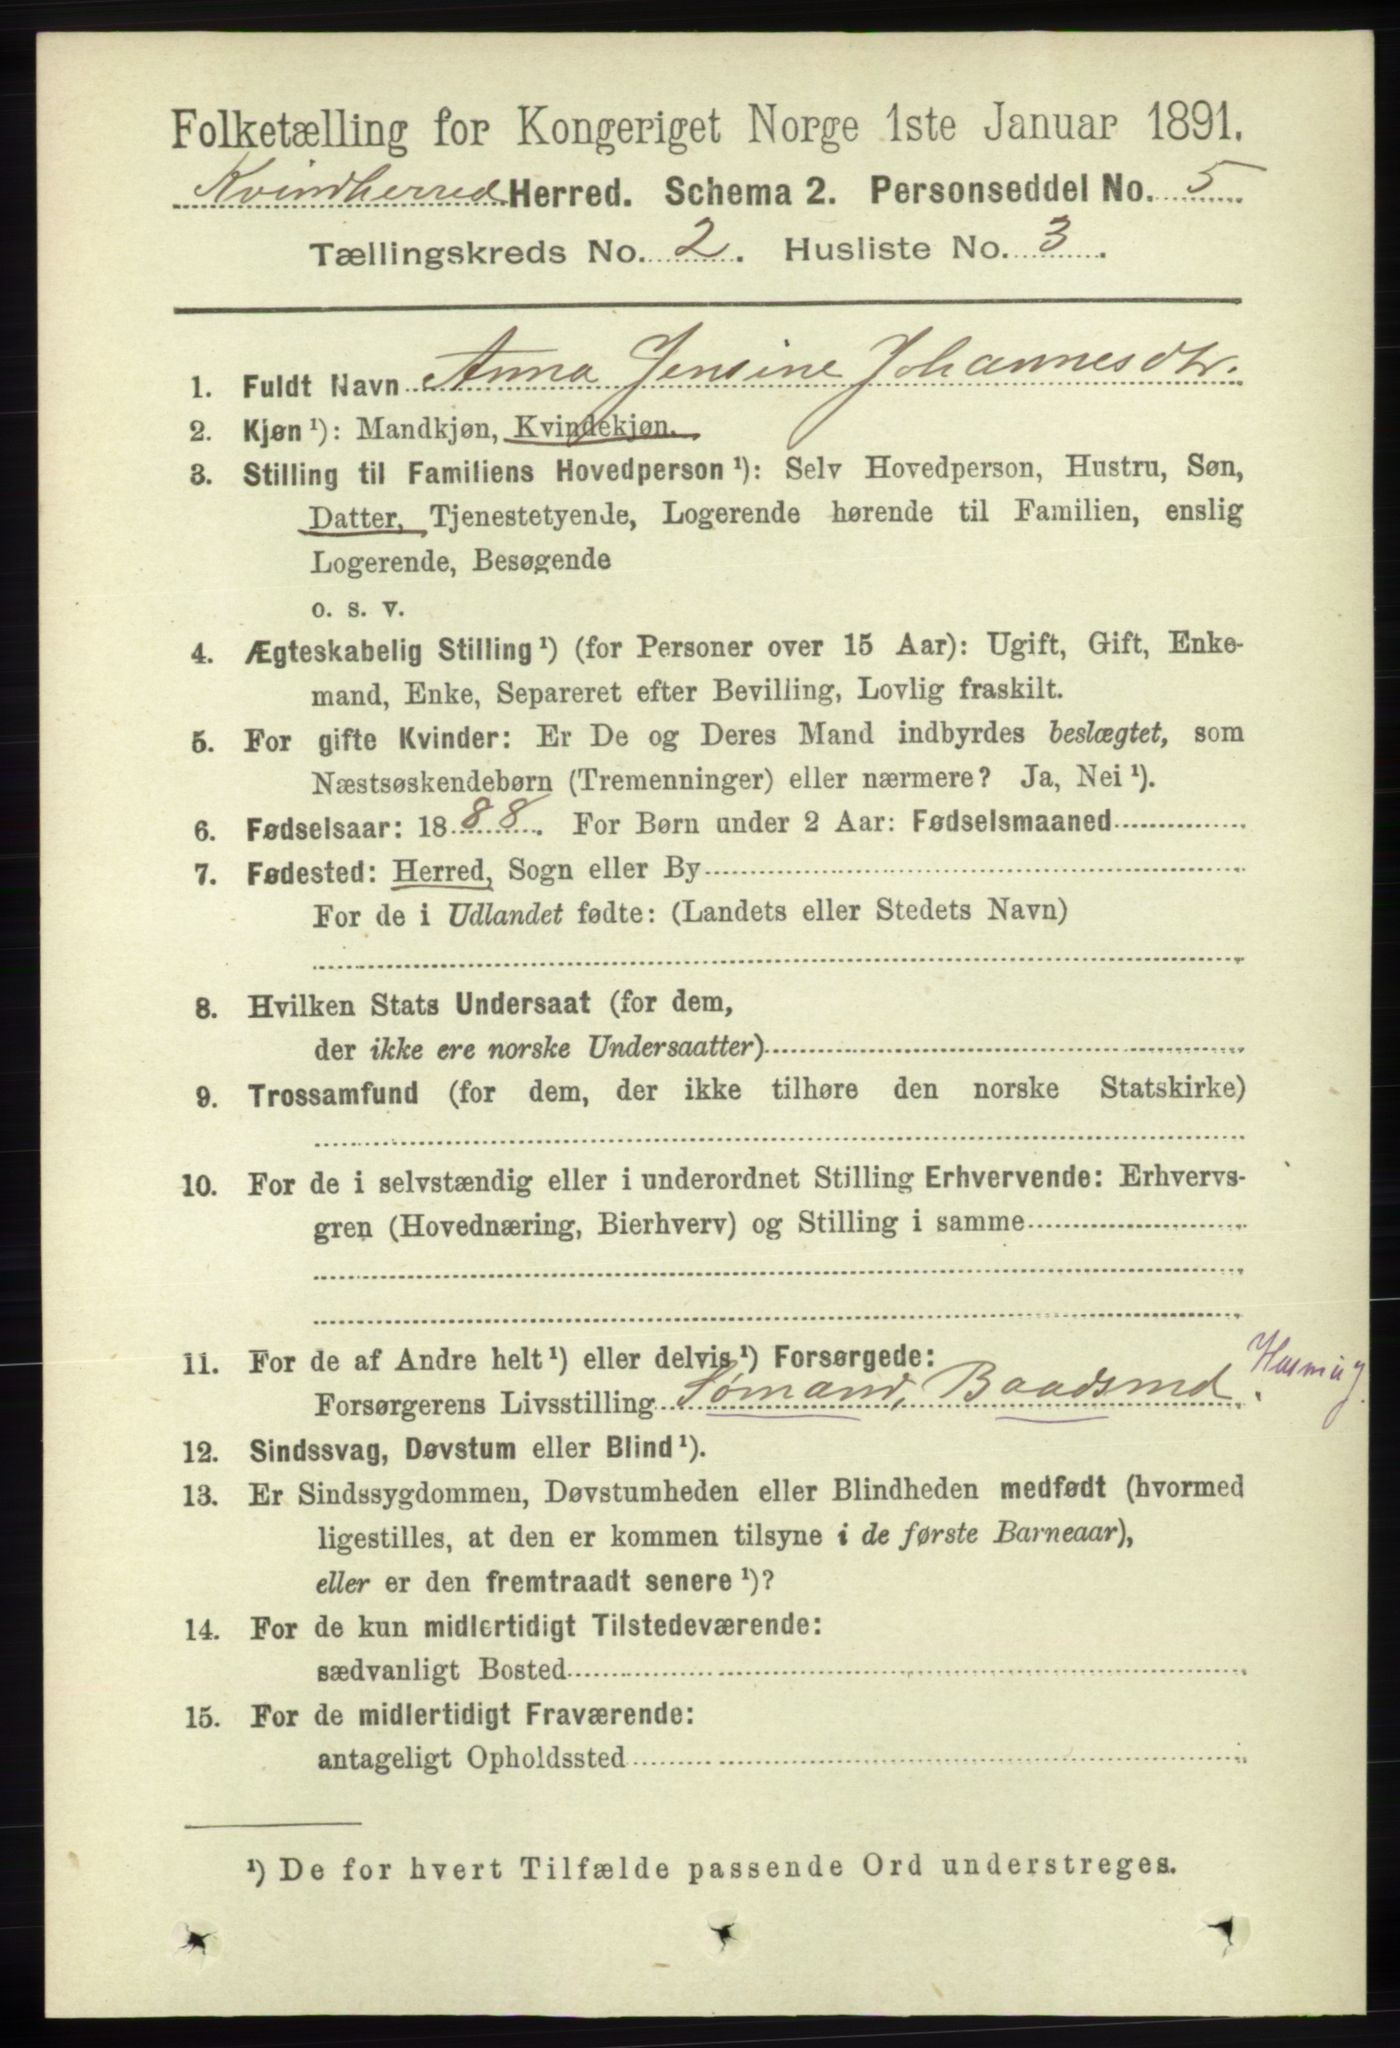 Folketælling for Kongeriget Norge 1ste Januar 1891.
Kvindherred Herred. Schema 2. Personseddel No. 5
Tællingskreds No. 2. Husliste No. 3.
1. Fuldt Navn Anna Jensine Johannesdtr.
2. Kjøn ¹): Mandkjøn, Kvindekjøn.
3. Stilling til Familiens Hovedperson ¹): Selv Hovedperson, Hustru, Søn,
Datter, Tjenestetyende, Logerende hørende til Familien, enslig
Logerende, Besøgende
o. s. v.
4. Ægteskabelig Stilling ¹) (for Personer over 15 Aar): Ugift, Gift, Enke-
mand, Enke, Separeret efter Bevilling, Lovlig fraskilt.
5. For gifte Kvinder: Er De og Deres Mand indbyrdes beslægtet, som
Næstsøskendebørn (Tremenninger) eller nærmere? Ja, Nei ¹).
6. Fødselsaar: 1888. For Børn under 2 Aar: Fødselsmaaned
7. Fødested: Herred, Sogn eller By
For de i Udlandet fødte: (Landets eller Stedets Navn)
8. Hvilken Stats Undersaat (for dem,
der ikke ere norske Undersaatter)
9. Trossamfund (for dem, der ikke tilhøre den norske Statskirke)
10. For de i selvstændig eller i underordnet Stilling Erhvervende: Erhvervs-
gren (Hovednæring, Bierhverv) og Stilling i samme
11. For de af Andre helt ¹) eller delvis ¹) Forsørgede:
Forsørgerens Livsstilling Sømand, Baadsmd.
12. Sindssvag, Døvstum eller Blind ¹).
13. Er Sindssygdommen, Døvstumheden eller Blindheden medfødt (hvormed
ligestilles, at den er kommen tilsyne i de første Barneaar),
eller er den fremtraadt senere ¹)?
14. For de kun midlertidigt Tilstedeværende:
sædvanligt Bosted
15. For de midlertidigt Fraværende:
antageligt Opholdssted
¹) De for hvert Tilfælde passende Ord understreges.